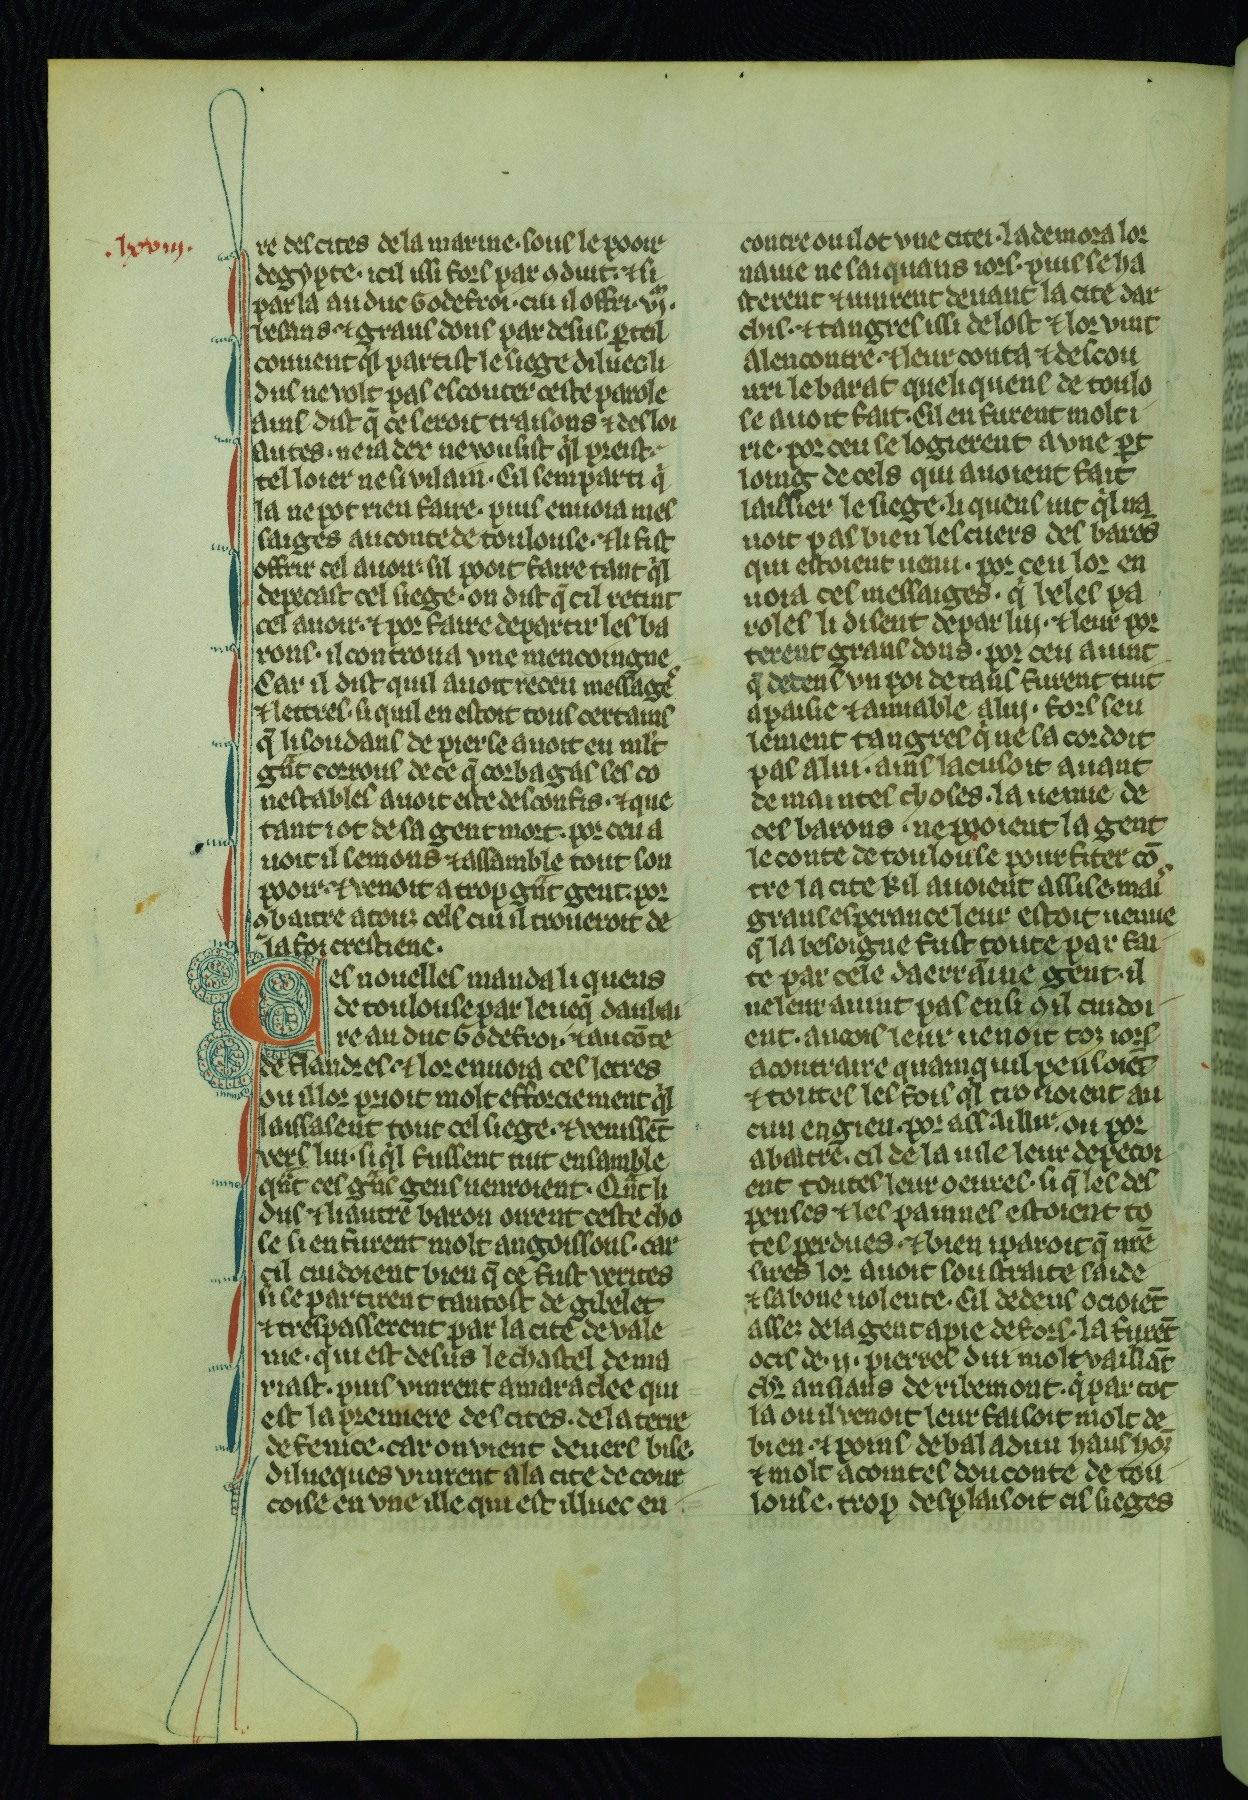 .lxviij.
re des cites de la marine. sous le pooir
degypte. icil issi fors par 9duit. ⁊ si
parla au duc Godefroi. cui il offri. vjᵐ.
besans. ⁊ grans dons par desus. p̱ teil
couuent q̃l partist le siege diluec li
dus ne volt pas escouter ceste parole
ains dist q̃ ce seroit traisons ⁊ desloi
autes. ne ia dex ne vousist q̃l preist
tel loier ne si vilain. Cil sem parti q̃
la ne pot rien faire. puis enuoia mes
saiges au conte de toulouse. ⁊ li fist
offrir cel auoir. sil pooit faire tant q̃l
depecast cel siege. on dist q̃ cil recint
cel auoir. ⁊ por faire departir les ba
rons. il controua vne mencoingne
Car il dist quil auoit receu messagˢ
⁊ lettres. si quil en estoit tous certains
q̃ li soudans de pierse auoit eu ml̃t
gñt corrous de ce q̃ corbagas ses co
nestables auoit este desconfis. ⁊ que
tant i ot de sa gent mort. por ceu a
uoit il semons ⁊ assamble tout son
pooir. ⁊ venoit a trop gñt gent. por
9batre a touz cels cui il troueroit de
la foi crestiene.
Ces nouelles manda li quens
de toulouse par leueq̃ daubai
re au duc Godefroi. ⁊ au cõte
de flandres. ⁊ lor enuoia ces letres
ou il lor prioit molt efforciement q̃l
laissasent tout cel siege. ⁊ venissẽt
vers lui. si q̃l fussent tuit ensamble
qñt ces gñs gens uenroient. Qñt li
dus ⁊ li autre baron oirent ceste cho
se si en furent molt angoissous. car
cil cuidoient bien q̃ ce fust verites
si se partirent tantost de gibelet
⁊ trespasserent par la cite de vale
nie. qui est desus le chastel de ma
riast. puis vinrent a maraclee qui
est la premiere des cites. de la terre
de fenice. car on vient deuers bise.
dilueques vinrent a la cite de cour
coise en vne ille qui est illuec en
contre ou il ot vne citei. La demora lor
nauie ne sai quans iors. puis se ha
sterent ⁊ uinrent deuant la cite dar
chis. ⁊ tangres issi de lost ⁊ lor vint
a lencontre. ⁊ leur conta ⁊ descou
uri le barat que li quens de toulo
se auoit fait. Cil en furent molt i
rie. por ceu se logierent a vne p̱t
loing de cels qui auoient fait
laissier le siege. li quens uit q̃l na
uoit pas bien les cuers des barõs
qui estoient uenu. por ceu lor en
uoia ces messaiges. q̃ beles pa
roles li disent de par lui. ⁊ leur por
terent grans dons. por ceu auint
q̃ dedens vn poi de tans furent tuit
apaisie ⁊ amiable a lui. fors seu
lement tangres q̃ ne sacordoit
pas a lui. ains lacusoit auant
de maintes choses. la uenue de
ces barons. ne pooient la gent
le conte de toulouse pourfiter cõ
tre la cite kil auoient assise. mais
grans esperance leur estoit uenue
q̃ la besoigne fust toute par fai
te par cele daerrãine gent. il
ne leur auint pas ensi 9 il cuidoi
ent. ancois leur uenoit toz iors
a contraire quamquil pensoiẽt
⁊ toutes les fois q̃l trouoient au
cun engieu. por assaillir. ou por
abatre. cil de la uile leur depecoi
ent toutes leur oeures. si q̃ les des
penses ⁊ les painnes estoient to
tes perdues. ⁊ bien i paroit q̃ nr̃e
sires lor auoit soustraite saide
⁊ sa bone uolente. Cil dedens ocioiẽt
assez de la gent a pie defors. la furẽt
ocis de. ij. pierres dui molt vaillãt
chr̃. ansiaus de ribemont. q̃ par tot
la ou il venoit leur faisoit molt de
bien. ⁊ poins de baladun haus hoz
⁊ molt acointes dou conte de tou
louse. trop desplaisoit cis sieges